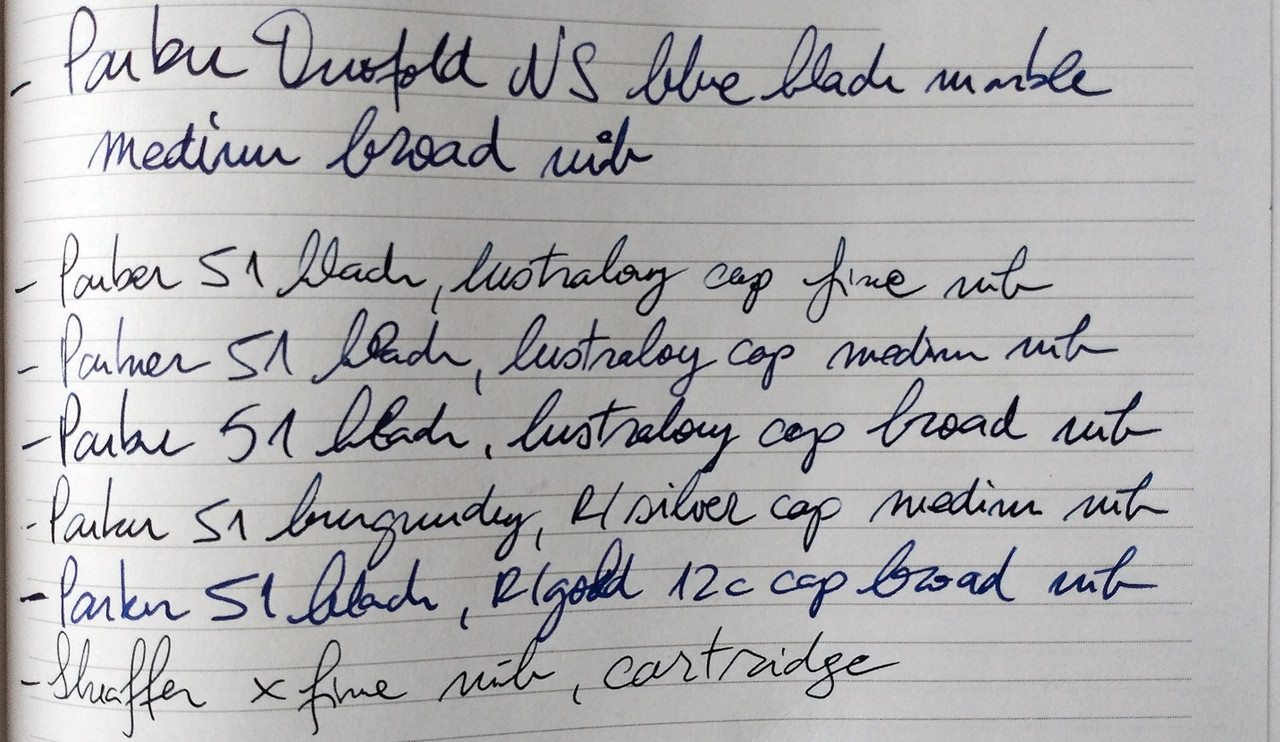 - Parker Duofold NS blue black marble
medium broad nib
- Parker 51 black, lustraloy cap fine nib
- Parker 51 black, lustraloy cap medium nib
- Parker 51 black, lustraloy cap broad nib
- Parker 51 burgundy, R/silver cap medium nib
- Parker 51 black, R/gold 12c cap broad nib
- Sheaffer x fine nib, cartridge